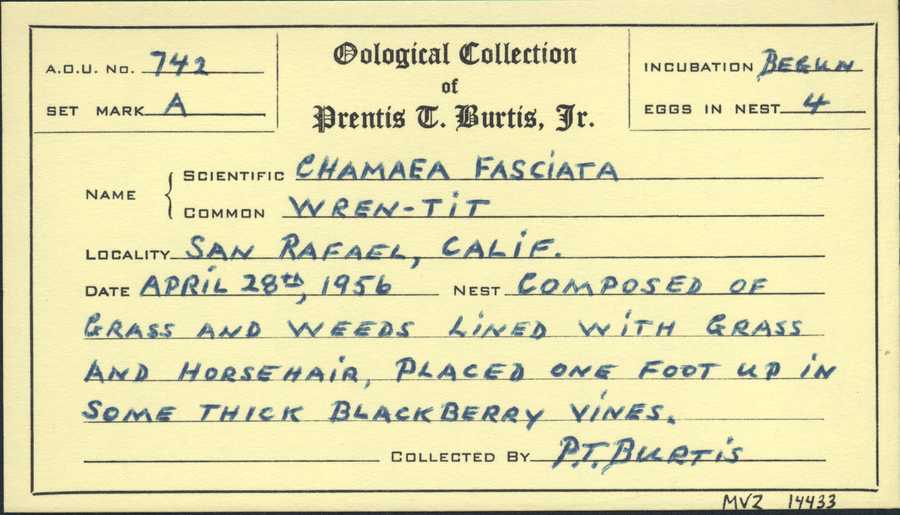 A.O.U. No. 742
SET MARK A
Oological Collection
of
Prentis T. Burtis, Jr.
INCUBATION BEGUN
EGGS IN NEST 4
NAME { SCIENTIFIC CHAMAEA FASCIATA
COMMON WREN-TIT
LOCALITY SAN RAFAEL, CALIF.
DATE APRIL 28th, 1956 NEST COMPOSED OF
GRASS AND WEEDS LINED WITH GRASS
AND HORSEHAIR, PLACED ONE FOOT UP IN
SOME THICK BLACKBERRY VINES.
COLLECTED BY P.T. BURTIS
MVZ 14433